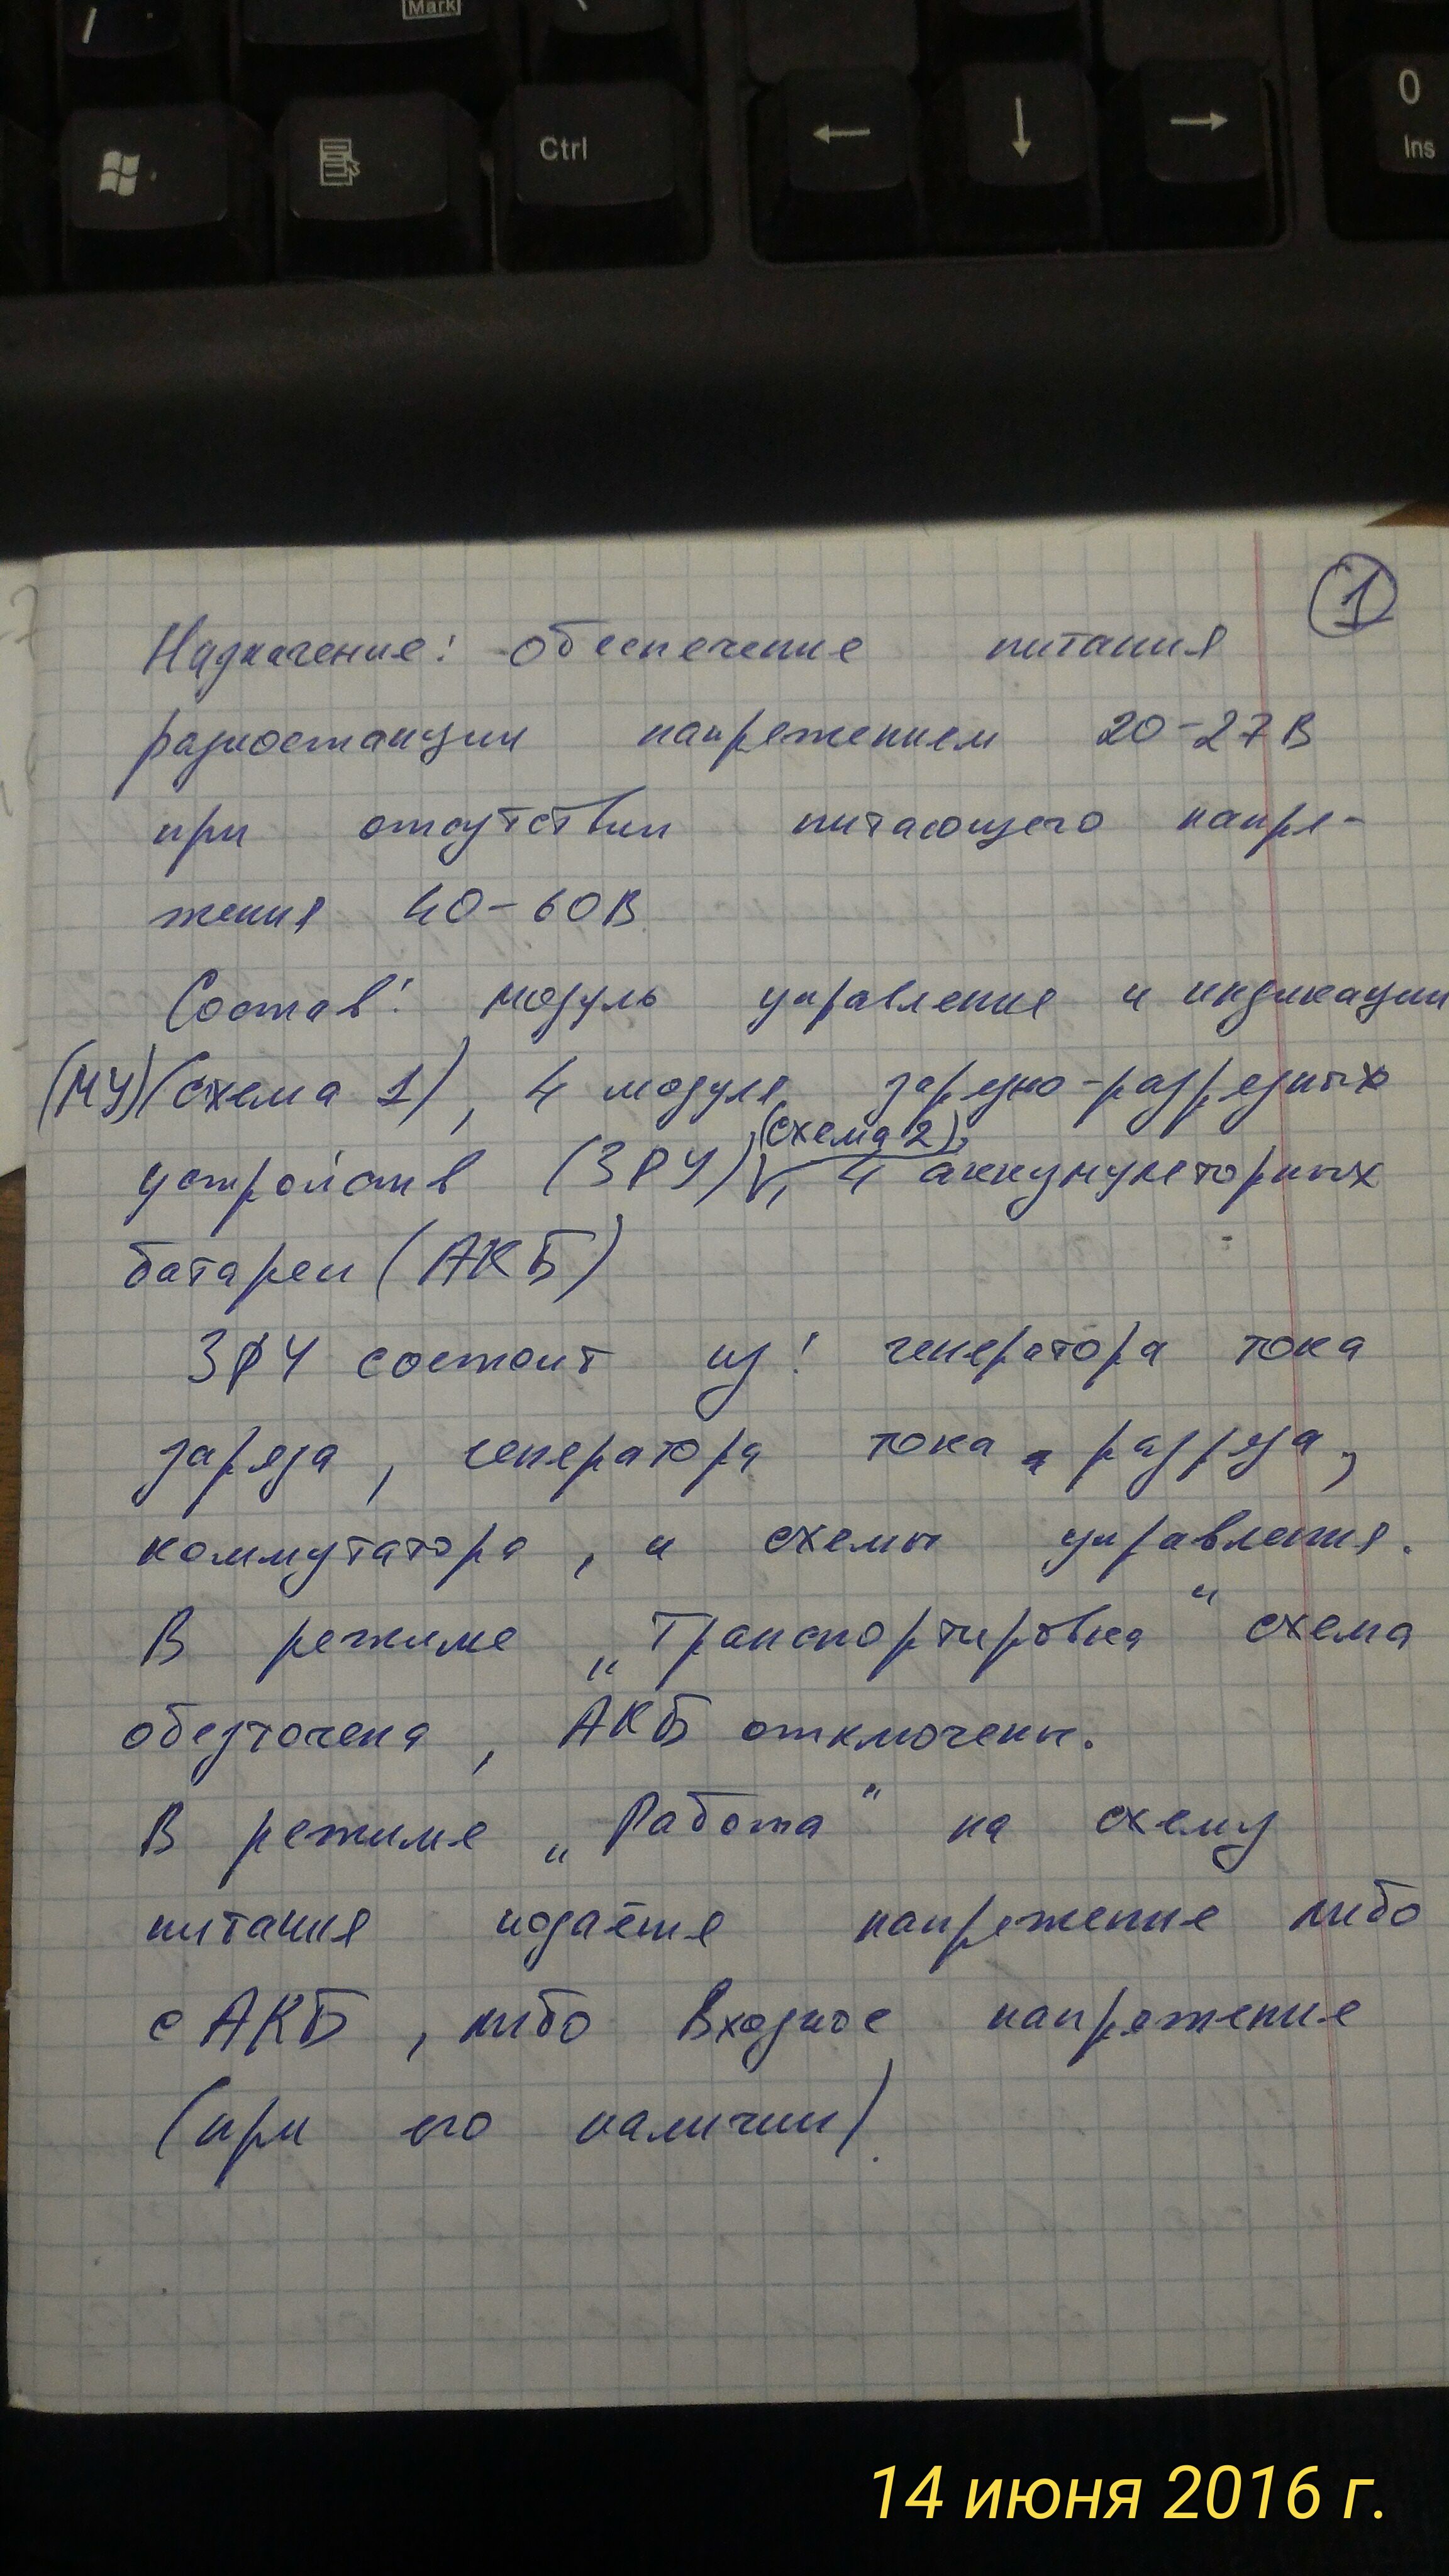 /
Mark
Ctrl
←
↓
→
0
Ins
1
Назначение: обеспечение питания
радиостанции напряжением 20-27В
при отсутствии питающего напря-
жения 40-60В
Состав: модуль управления и индикации
(МУ)(схема 1), 4 модуля зарядно-разрядных
(схема 2),
устройств (ЗРУ), 4 аккумуляторных
батареи (АКБ)
ЗРУ состоит из: генератора тока
заряда, генератора тока разряда,
коммутатора, и схемы управления.
В режиме „Транспортировка“ схема
обезточена, АКБ отключены.
В режиме „Работа“ на схему
питания подаётся напряжение либо
с АКБ, либо входное напряжение
(при его наличии).
14 июня 2016 г.